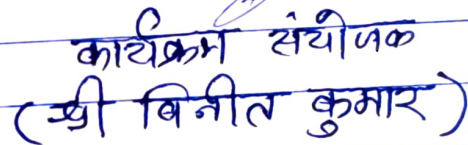 कार्यक्रम संयोजक
(श्री विनीत कुमार)